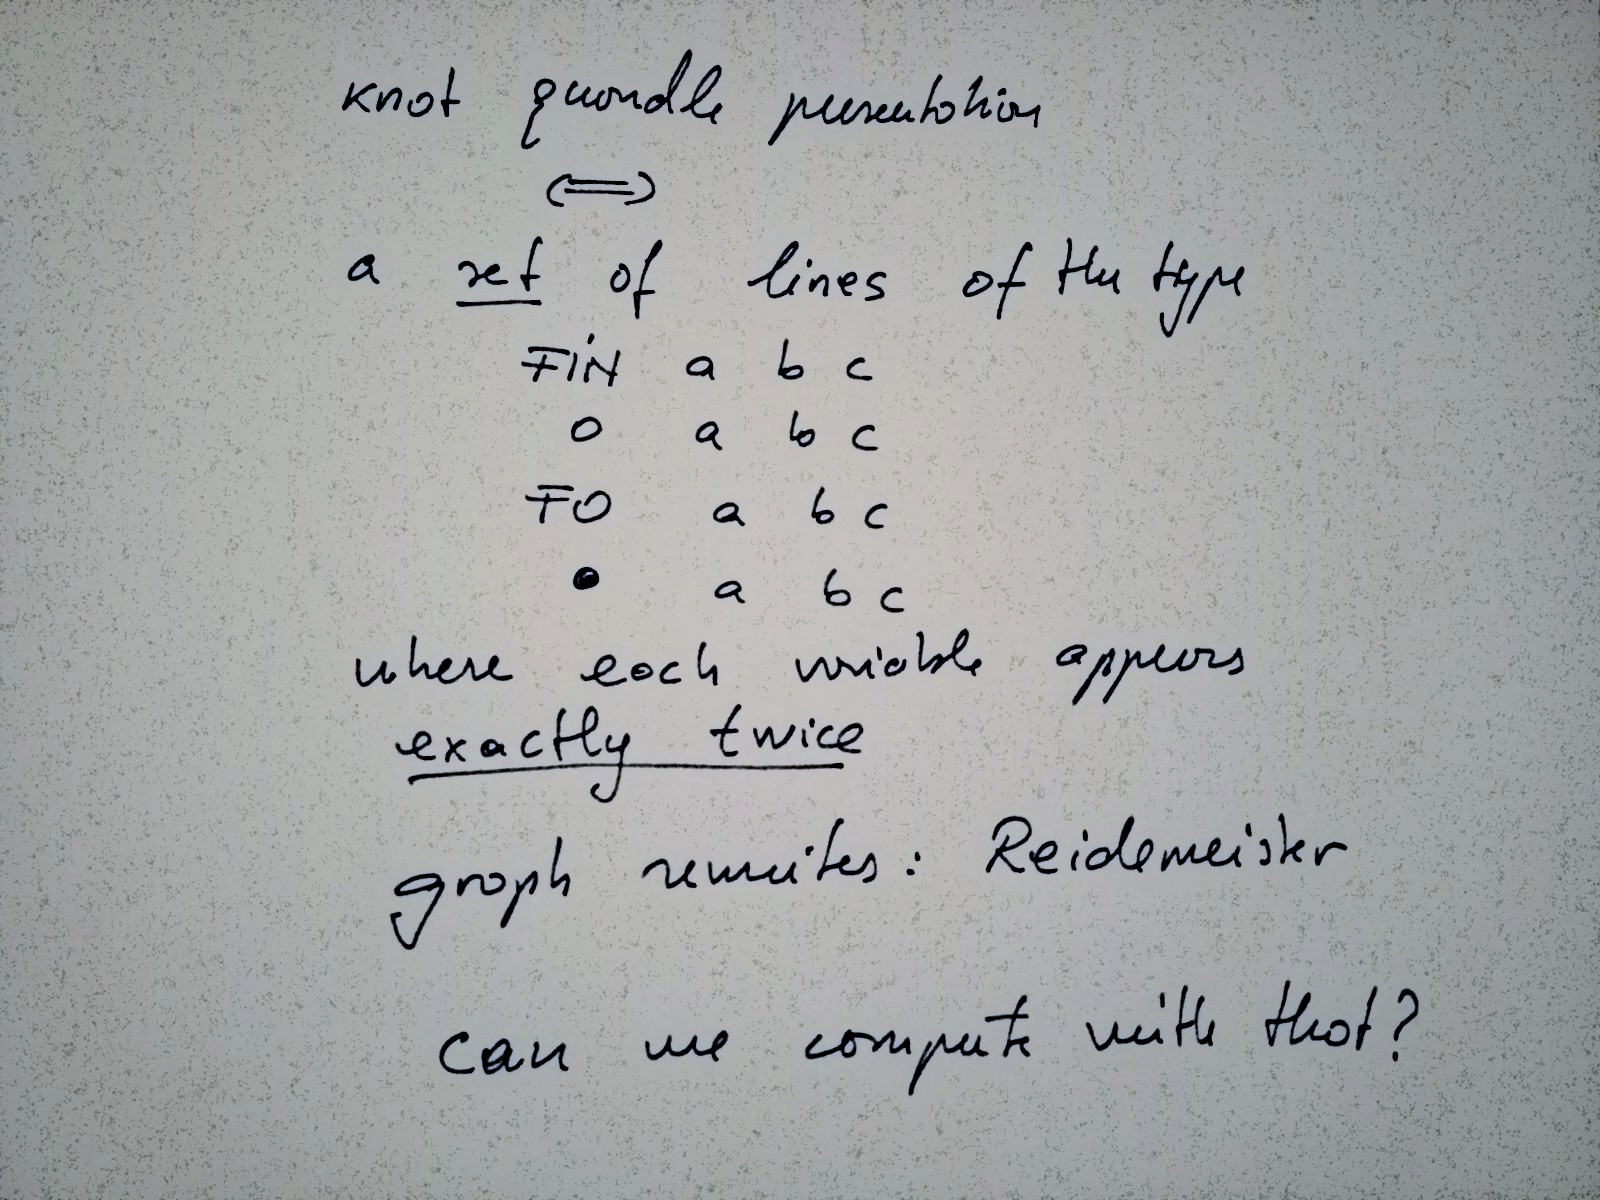 knot quandle presentation
<=>
a set of lines of the type
FIN a b c
O a b c
FO a b c
● a b c
where each variable appears
exactly twice
graph rewrites: Reidemeister
can we compute with that?